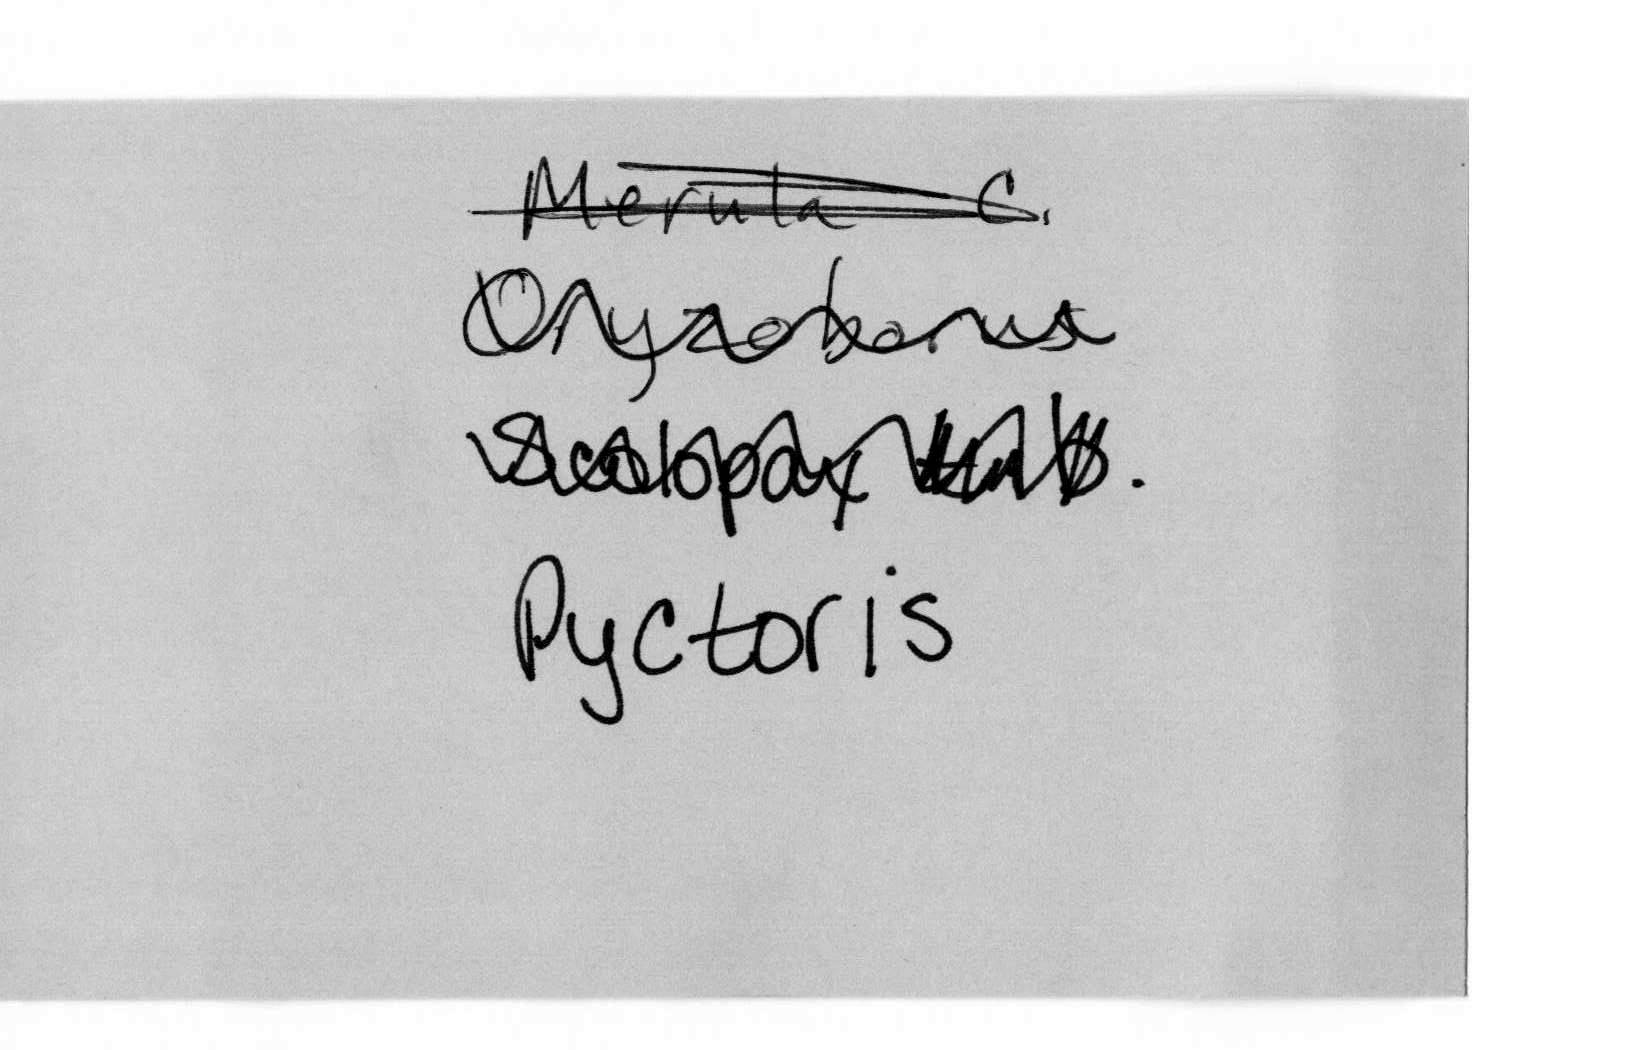 Merula C.
Oryzoborus
Scolopax
Pyctoris